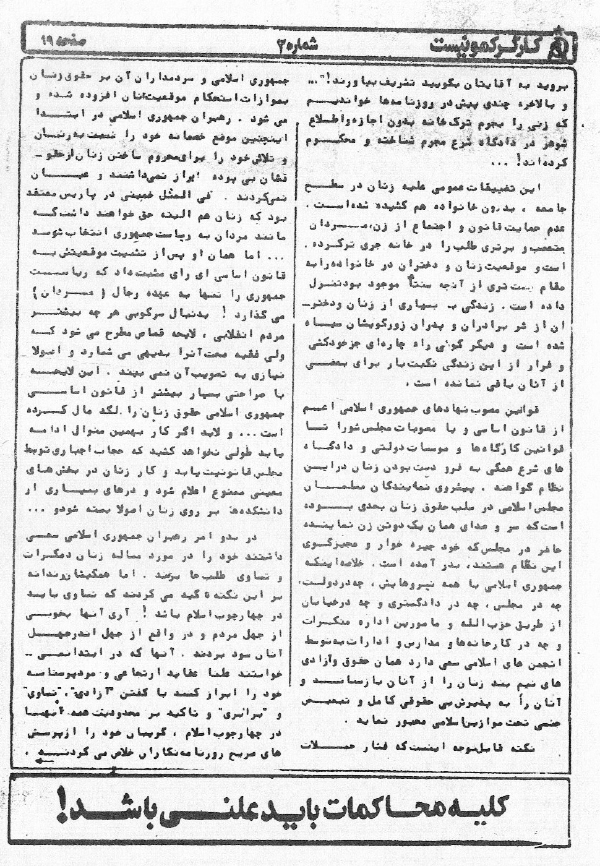 کارگر کمونیست
شماره ۲
صفحه ۱۹
بروید به آقایتان بگویید تشریف بیاورند!"...
و بالاخره چندی پیش در روزنامه‌ها خواندیم
که زنی را بجرم ترک خانه بدون اجازه و اطلاع
شوهر در دادگاه شرع مجرم شناخته و محکوم
کرده‌اند! ...
این تضییقات عمومی علیه زنان در سطح
جامعه ، بدرون خانواده هم کشیده شده‌است .
عدم حمایت قانون و اجتماع از زن، مردان
متعصب و برتری طلب را در خانه جری تر کرده .
است و موقعیت زنان و دختران در خانواده را به
مقام پست‌تری از آنچه سنتاً موجود بود تنزل
داده است . زندگی بر بسیاری از زنان و دختر-
ان از شر برادران و پدران زورگویشان سیاه
شده است و دیگر گوئی راه چاره‌ای جز خودکشی
و فرار از این زندگی نکبت‌بار برای بعضی
از آنان باقی نمانده است .
قوانین مصوب نهادهای جمهوری اسلامی اعم
از قانون اساسی و یا مصوبات مجلس شورا تا
قوانین کارگاه‌ها و موسسات دولتی و دادگاه
های شرع همگی به فرو دست بودن زنان در این
نظام گواهند . پیشروی نمایندگان مظلمان
مجلس اسلامی در سلب حقوق زنان بحدی بوده
است که سر و صدای همان یک دوتن زن نماینده
حاضر در مجلس که خود جیره خوار و مجیزگوی
این نظام هستند، بدر آمده است . خلاصه اینکه
جمهوری اسلامی با همه نیروهایش ، چه در دولت،
چه در مجلس ، چه در دادگستری و چه در خیابان
از طریق حزب‌الله و مامورین اداره منکرات
و چه در کارخانه‌ها و مدارس و ادارات به توسط
انجمن های اسلامی سعی دارد همان حقوق و آزادی
های نیم بند زنان را از آنان باز ستاند و
آنان را به پذیرش بی حقوقی کامل و تبعیض
جنسی تحت موازین اسلامی مجبور نماید .
نکته قابل توجه اینست که فشار حملات
جمهوری اسلامی و سردمداران آن بر حقوق زنان
بموازات استحکام موقعیت‌شان افزوده شده و
می شود . رهبران جمهوری اسلامی در ابتدا
اینچنین موضع خصمانه خود را نسبت به زنان
و تلاش خود را برای محروم ساختن زنان از حقو-
قشان بی پرده ابراز نمی‌داشتند و عیان
نمی‌کردند . فی المثل خمینی در پاریس معتقد
بود که زنان هم البته حق خواهند داشت که
مانند مردان به ریاست جمهوری انتخاب شوند
... اما همان او پس از تثبیت موقعیتش به
قانون اساسی ای رای مثبت داد که ریاست
جمهوری را تنها به عهده رجال (مردان)
می گذارد ! بدنبال سرکوبی هر چه بیشتر
مردم انقلابی ، لایحه قصاص مطرح می شود که
ولی فقیه صحت آنرا بدیهی می شمارد و اصولا
نیازی به تصویب آن نمی بیند . این لایحه
با صراحتی بسیار بیشتر از قانون اساسی
جمهوری اسلامی حقوق زنان را لگد مال کرده
است ... و لابد اگر کار بهمین منوال ادامه
یابد طولی نخواهد کشید که حجاب اجباری توسط
مجلس قانونیت یابد و کار زنان در بخش های
معینی ممنوع اعلام شود و درهای بسیاری از
دانشکده‌ها بر روی زنان اصولا بسته شود و ...
در بدو امر رهبران جمهوری اسلامی سعی
داشتند خود را در مورد مساله زنان دمکرات
و تساوی طلب جا بزنند . اما همگی رندانه
بر این نکته تاکید می کردند که تساوی باید
در چهارچوب اسلام باشد ! آری آنها بخوبی
از جهل مردم و در واقع از جهل اندر جهل
آنان سود بردند . آنها که در ابتدا نمی-
خواستند علنا عقاید ارتجاعی و مردپرستانه
خود را ابراز کنند با گفتن "آزادی"، "تساوی"
و "برابری" و تاکید بر محدودیت همه آنها
در چهارچوب اسلام ، گریبان خود را از پرسش
های صریح روزنامه‌نگاران خلاص می کردند .
کلیه محاکمات باید علنی باشد!